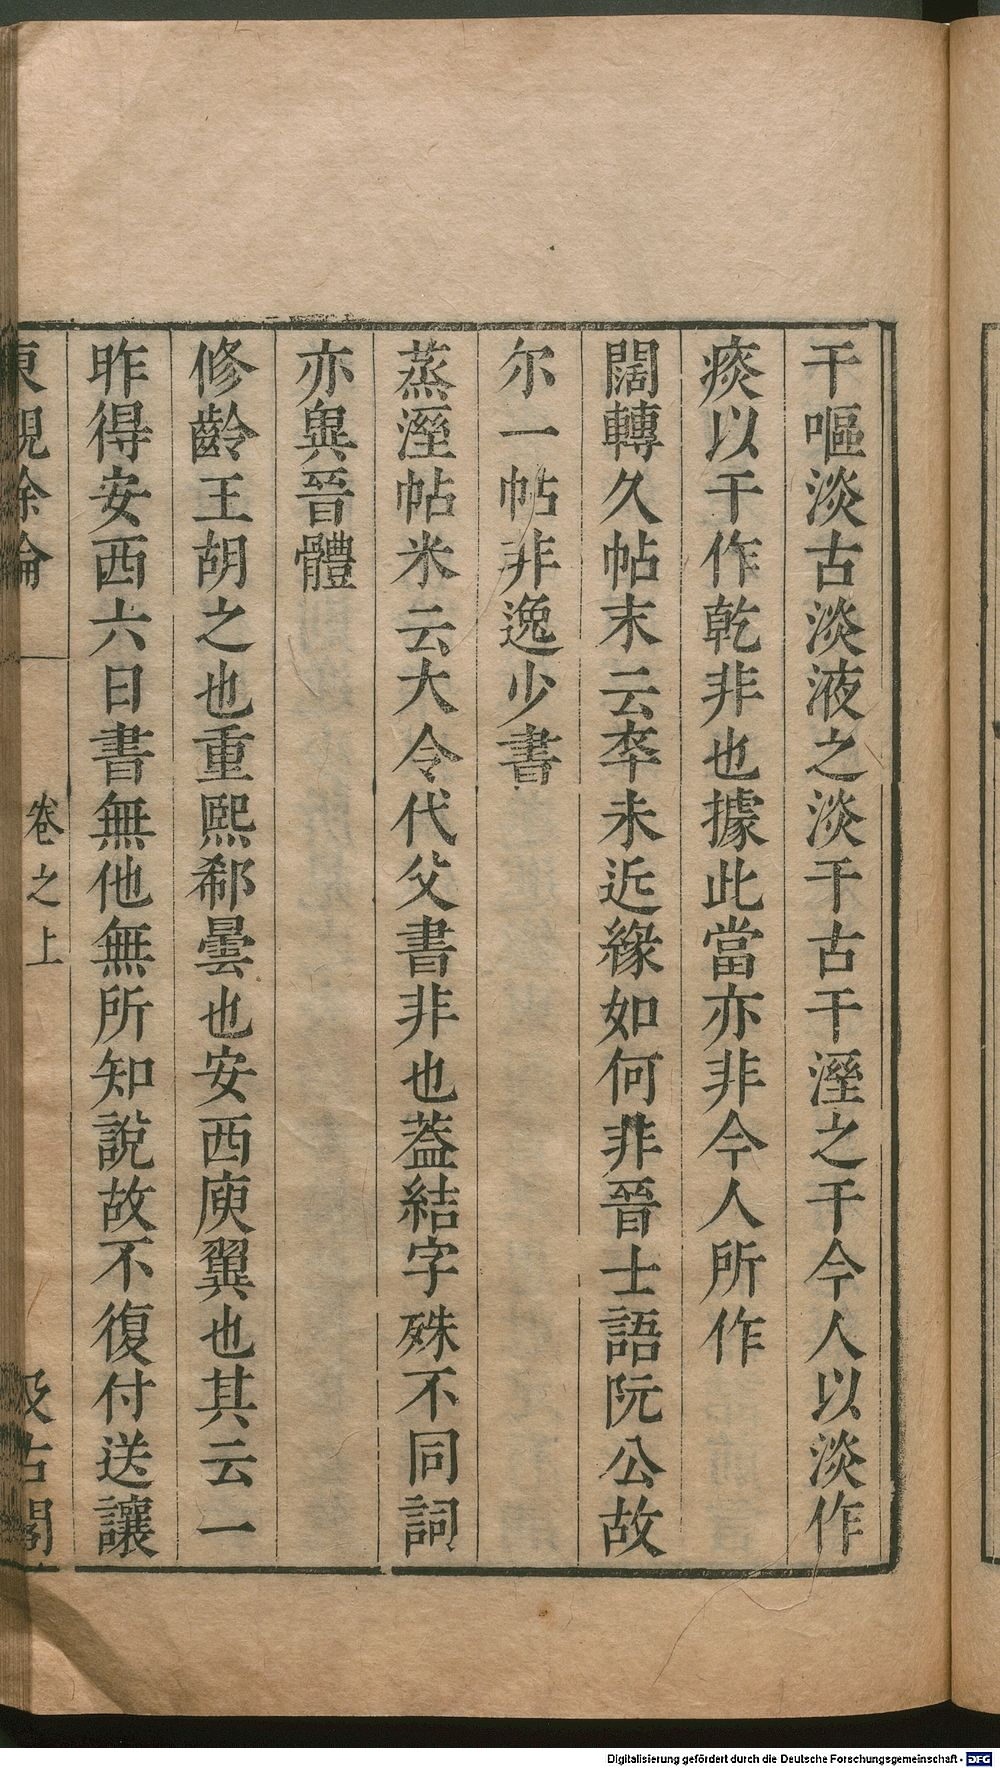 干嘔淡古淡液之淡干古干溼之干今人以淡作
痰以干作乾非也據此當亦非今人所作
闊轉久帖末云卒未近緣如何非晉士語阮公故
尔一帖非逸少書
蒸溼帖米云大令代父書非也葢結字殊不同詞
亦與晉體
修齡王胡之也重熙郗曇也安西庾翼也其云一
昨得安西六日書無他無所知說故不復付送讓
東觀餘論
卷之上
汲古閣
Digitalisierung gefördert durch die Deutsche Forschungsgemeinschaft - DFG